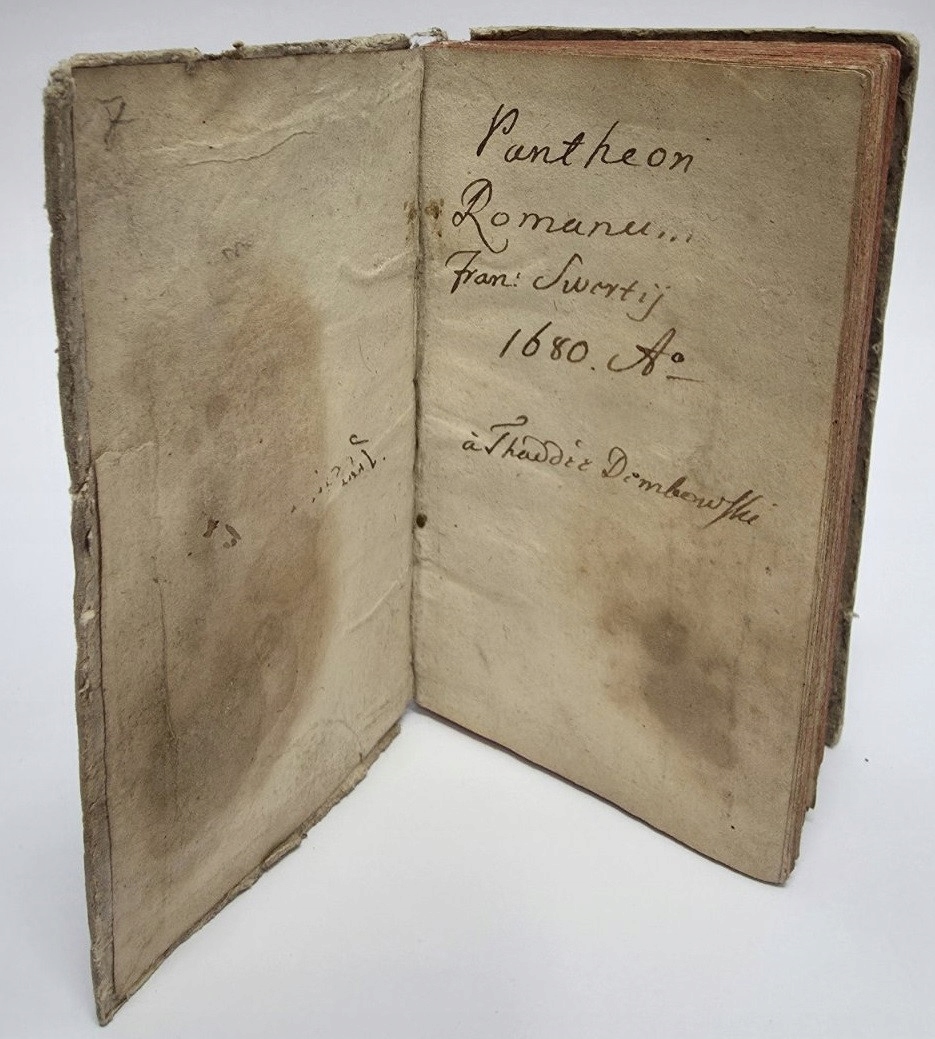 7
Pantheon
Romanu...
Fran: Swertij
1680. Aº
à Thaddée Dembowski